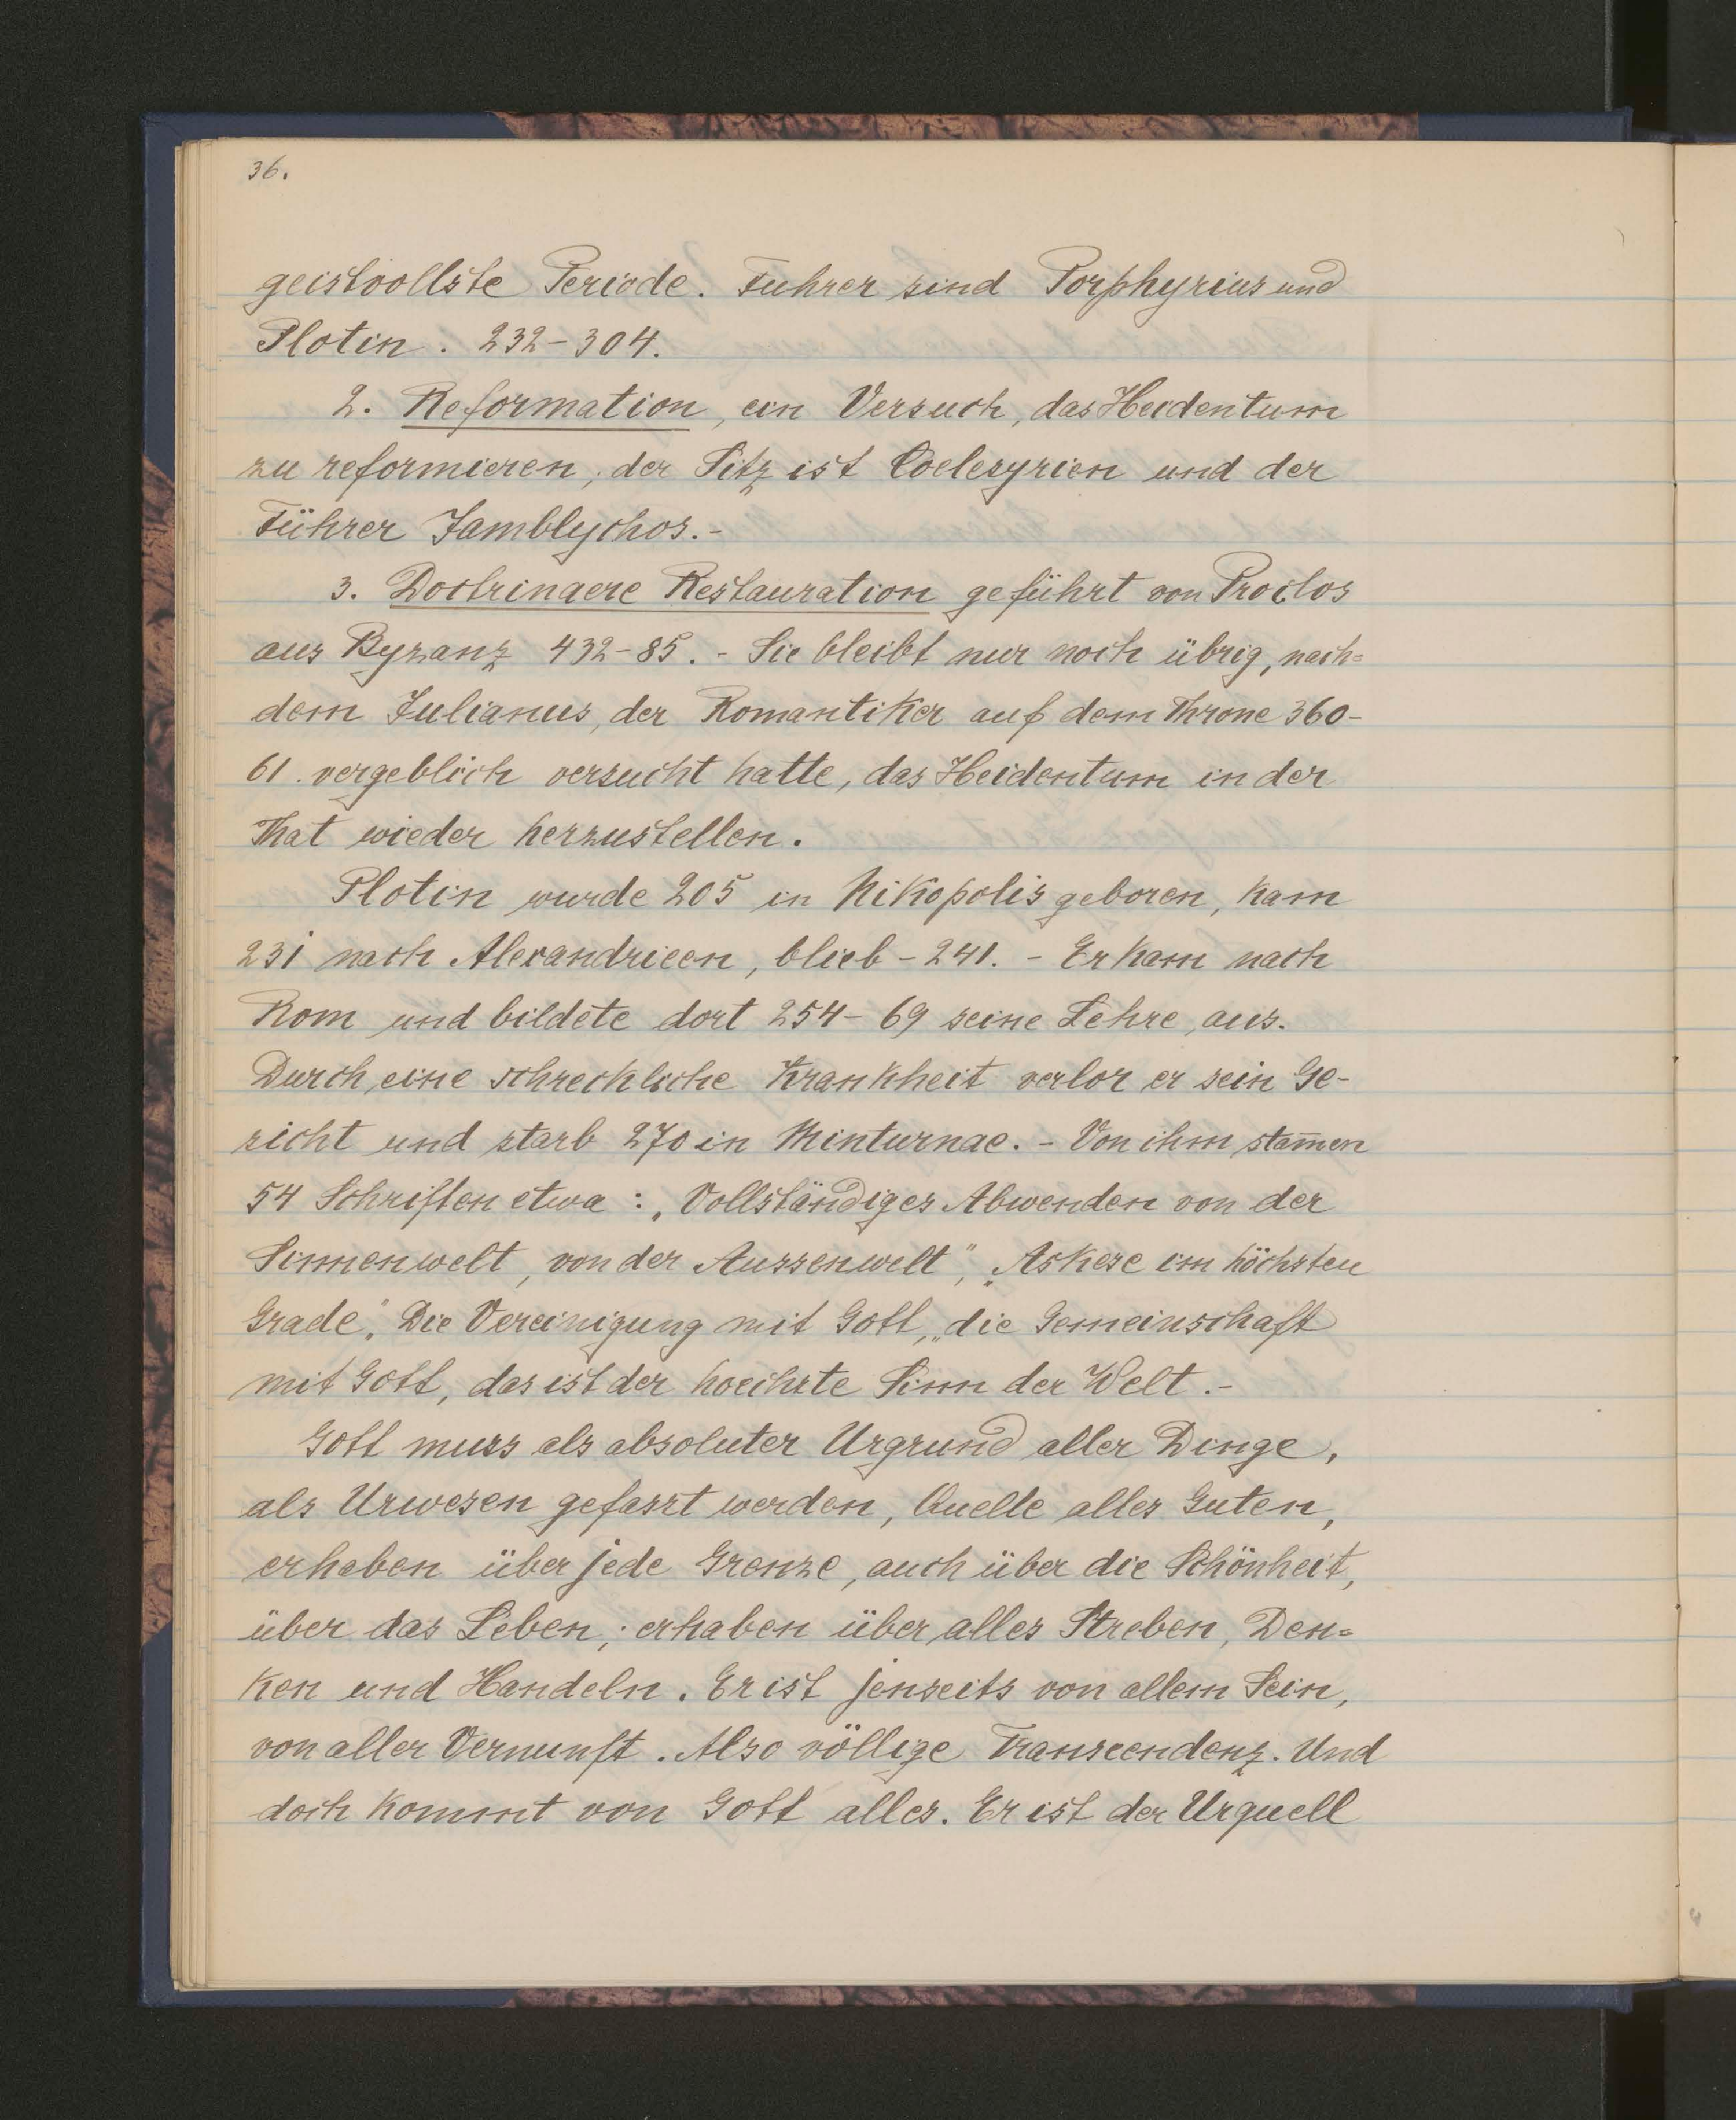 36.
geistvollste Periode. Fuhrer sind Porphyrius und
Plotin. 232-304.
2. Reformation, ein Versuch, das Heidentum
zu reformieren; der Sitz ist Coelesyrien und der
Führer Jamblychos.-
3. Doctrinaere Restauration geführt von Proclos
aus Byzanz 432-85. - Sie bleibt nur noch übrig, nach=
dem Julianus, der Romantiker auf dem Throne 360-
61. vergeblich versucht hatte, das Heidentum in der
That wieder herzustellen.
Plotin wurde 205 in Nikopolis geboren, kam
231 nach Alexandrieen, blieb - 241. - Er kam nach
Rom und bildete dort 254-69 seine Lehre aus.
Durch eine schreckliche Krankheit verlor er sein Ge-
sicht und starb 270 in Minturnae. - Von ihm stam̅en
54 Schriften etwa: „Vollständiges Abwenden von der
Sinnenwelt, von der Aussenwelt", „Askese im höchsten
Grade". Die Vereinigung mit Gott, „die Gemeinschaft
mit Gott, das ist der hoechste Sinn der Welt.-
Gott muss als absoluter Urgrund aller Dinge,
als Urwesen gefasst werden, Quelle alles Guten,
erhaben über jede Grenze, auch über die Schönheit,
über das Leben; erhaben über alles Streben, Den=
ken und Handeln. Er ist jenseits von allem Sein,
von aller Vernunft. Also völlige Transcendenz. Und
doch kommt von Gott alles. Er ist der Urquell